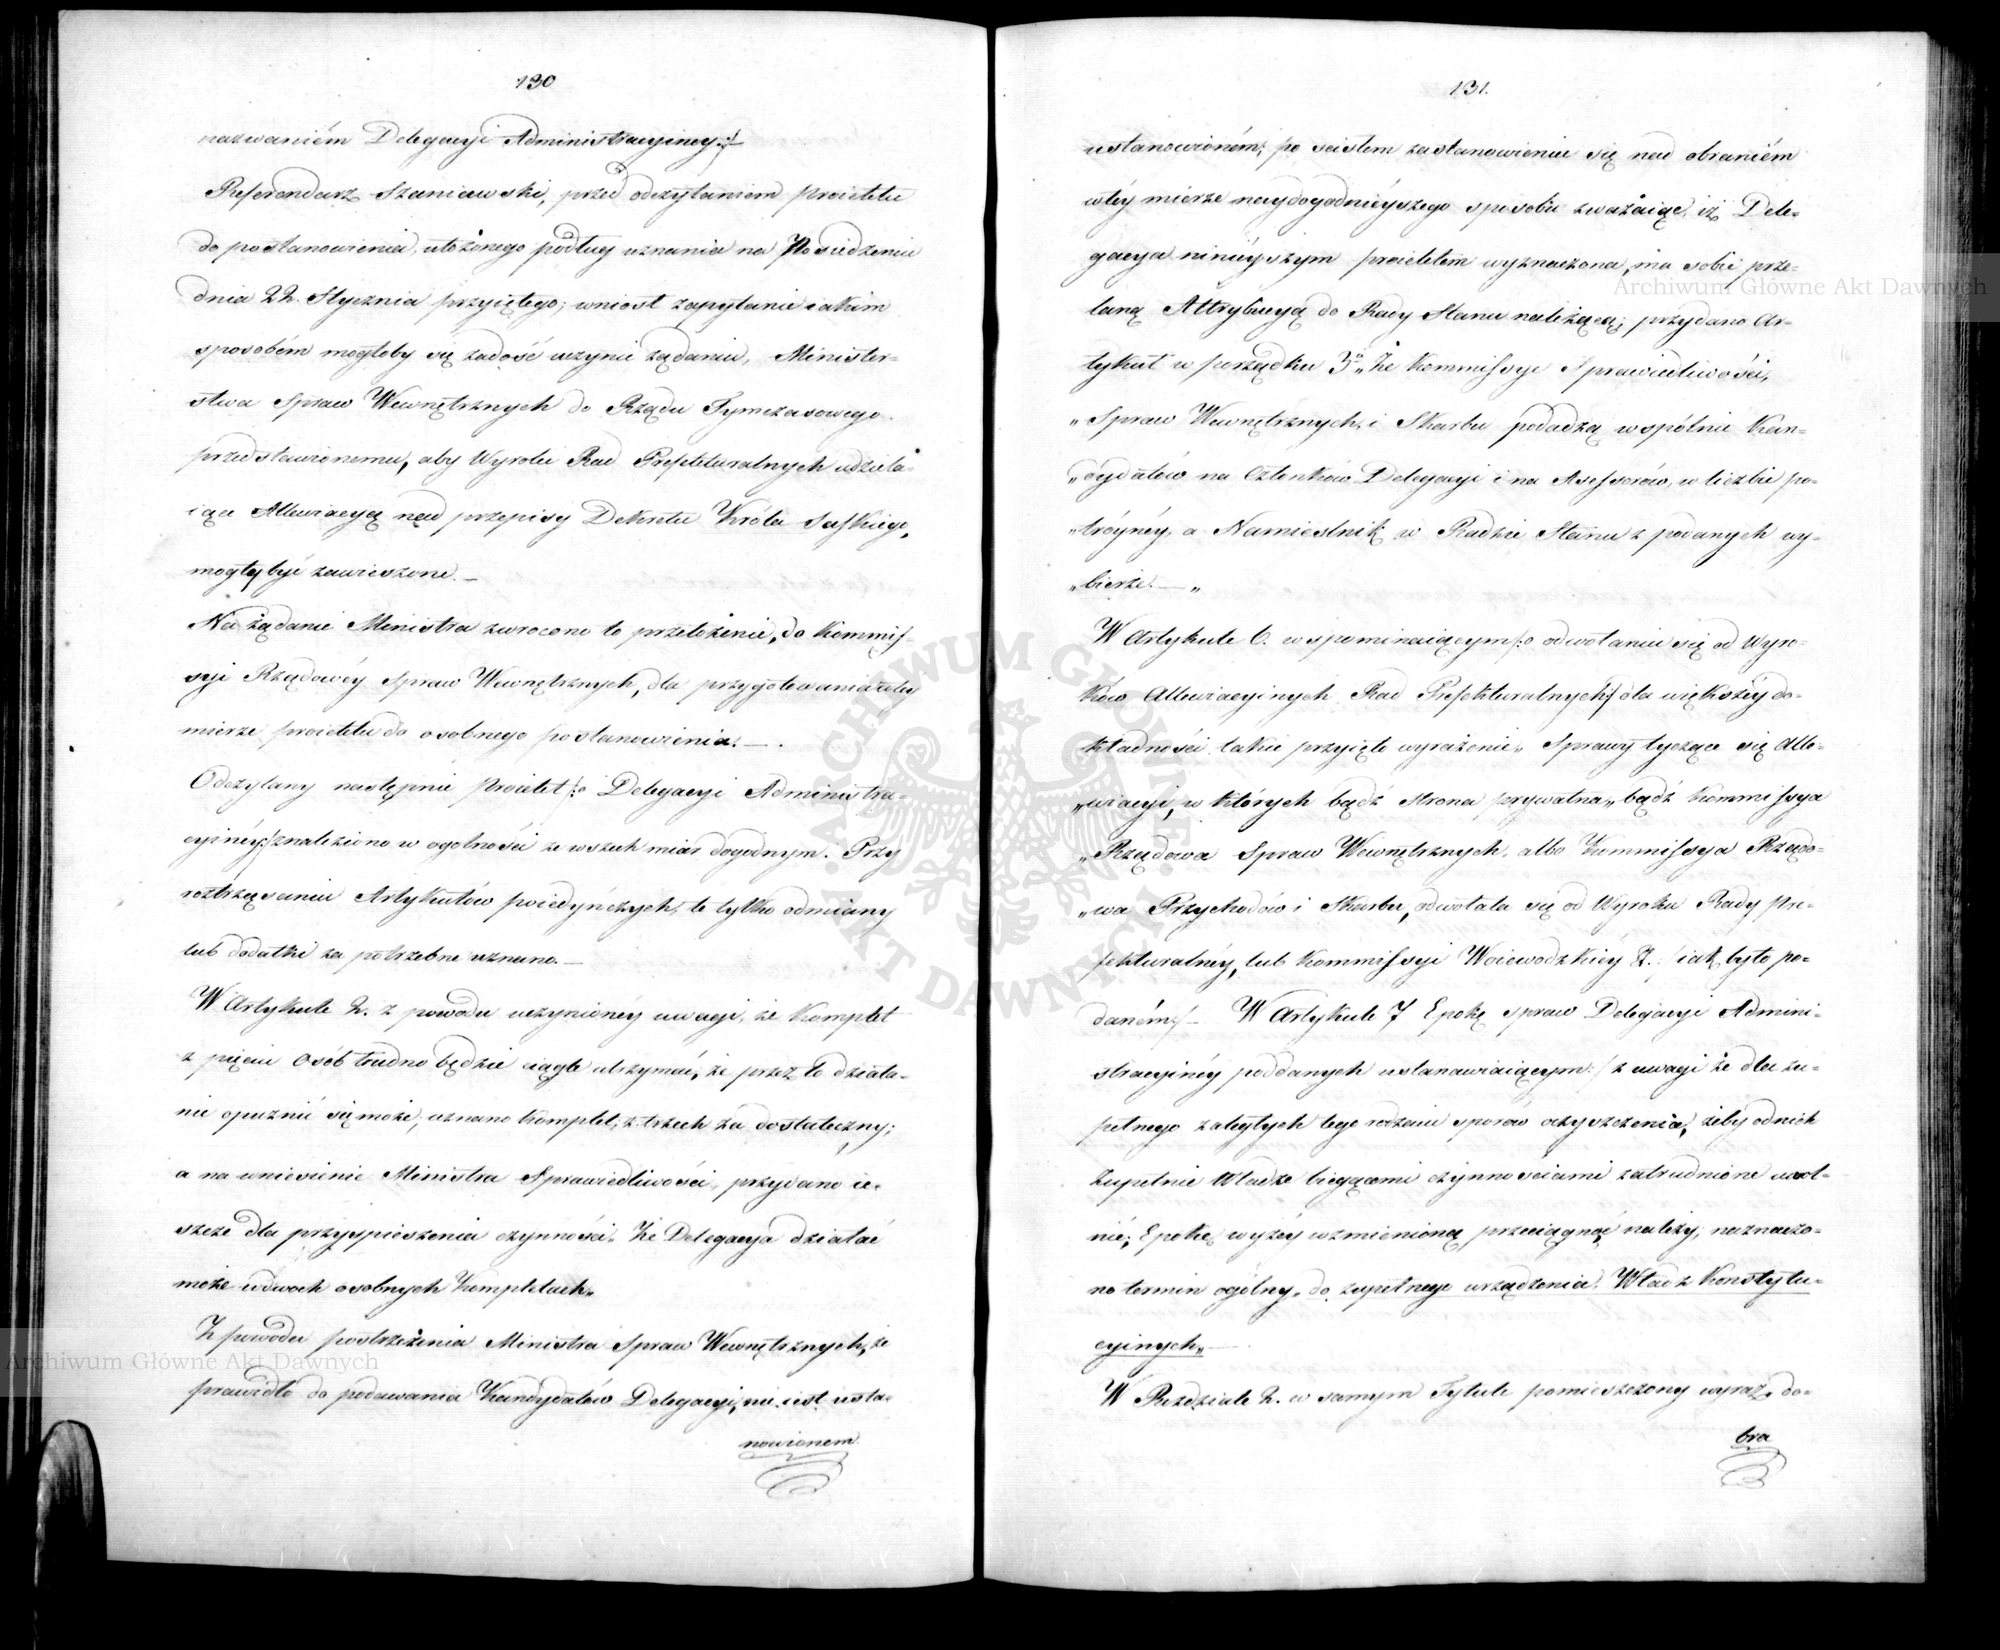 130
nazwaniém Delegacyi Administracyiney:/
Referendarz Szaniawski, przed odczytaniem proiektu
do postanowienia, ułożonego podług uznania na Posiedzeniu
dnia 22. Stycznia przyiętego; wniosł zapytanie iakim
sposobém mogłoby się zadość uczynić żądaniu, Minister-
stwa Spraw Wewnętrznych do Rządu Tymczasowego
przedstawionemu, aby Wyroki Rad Prefekturalnych udziela-
iące Allewiacyą nad przepisy Dekretu Króla Saskiego,
mogły być zawieszone.—
Na żądanie Ministra zwrocono to przełożenie, do Kommis-
syi Rządowéy Spraw Wewnętrznych, dla przygotowania w tey
mierze proiektu do osobnego postanowienia.—.
Odczytany następnie Proiekt /:o Delegacyi Administra-
cyinéy:/ znaleziono w ogolności ze wszech miar dogodnym. Przy
roztrząsaniu Artykułów poiedyńczych, te tylko odmiany
lub dodatki za potrzebne uznano.—
W Artykule 2. z powodu uczynionéy uwagi, że Komplet
z pięciu Osób trudno będzie ciągle utrzymać, że przez to działa-
nie opuznić się może, uznano komplet, z trzech za dostateczny;
a na wniesienie Ministra Sprawiedliwości, przydano ie-
szcze dla przyspieszenia czynności „Że Delegacya działać
może w dwoch osobnych Kompletach„
Z powodu postrzeżenia Ministra Spraw Wewnętrznych, że
prawidło do podawania Kandydatów Delegacyi, nie iest usta-
nowionem
131.
ustanowioném; po scisłem zastanowieniu się nad obraniém
w téy mierze naydogodnieyszego sposobu zważaiąc, iż Dele-
gacya ninieyszym proiektém wyznaczona, ma sobie prze-
laną Attrybucyą do Rady Stanu należącą; przydano Ar-
tykuł w porządku 3º „Że Kommissye Sprawiedliwości,
„Spraw Wewnętrznych, i Skarbu podadzą wspólnie Kan-
„dydatów na Członków Delegacyi i na Assessorów, w liczbie po-
„tróynéy, a Namiestnik w Radzie Stanu z podanych wy-
„bierze.—„
W Artykule 6. wspominaiącym /:o odwołaniu się od Wyro-
ków Allewiacyinych Rad Prefekturalnych:/ dla większéy do-
kładności takie przyięte wyrażenie „Sprawy tyczące się Alle-
„wiacyi, w których bądź strona prywatna, bądź Kommissya
„Rządowa Spraw Wewnętrznych, albo Kommissya Rządo-
„wa Przychodów i Skarbu, odwołała się od Wyroku Rady Pre-
fekturalnéy, lub Kommissyi Woiewodzkiéy &. /iak było po-
daném:/— W Artykule 7 Epokę spraw Delegacyi Admini-
stracyinéy poddanych ustanawiaiącym:/ z uwagi że dla zu-
pełnego zaległych tego rodzaiu sporów oczyszczenia, żeby od nich
Zupełnie Władze bieżącemi czynnościami zatrudnione uwol-
nić; Epokę wyżéy wzmienioną przeciągnąć należy, naznaczo-
no termin ogólny „do zupełnego urządzenia Władz Konstytu-
cyinych„—
W Rozdziale 2. w samym Tytule pomieszczony wyraz, do-
bra
Archiwum Główne Akt Dawnych
Archiwum Główne Akt Dawnych
ARCHIWUM GŁÓWNE AKT DAWNYCH